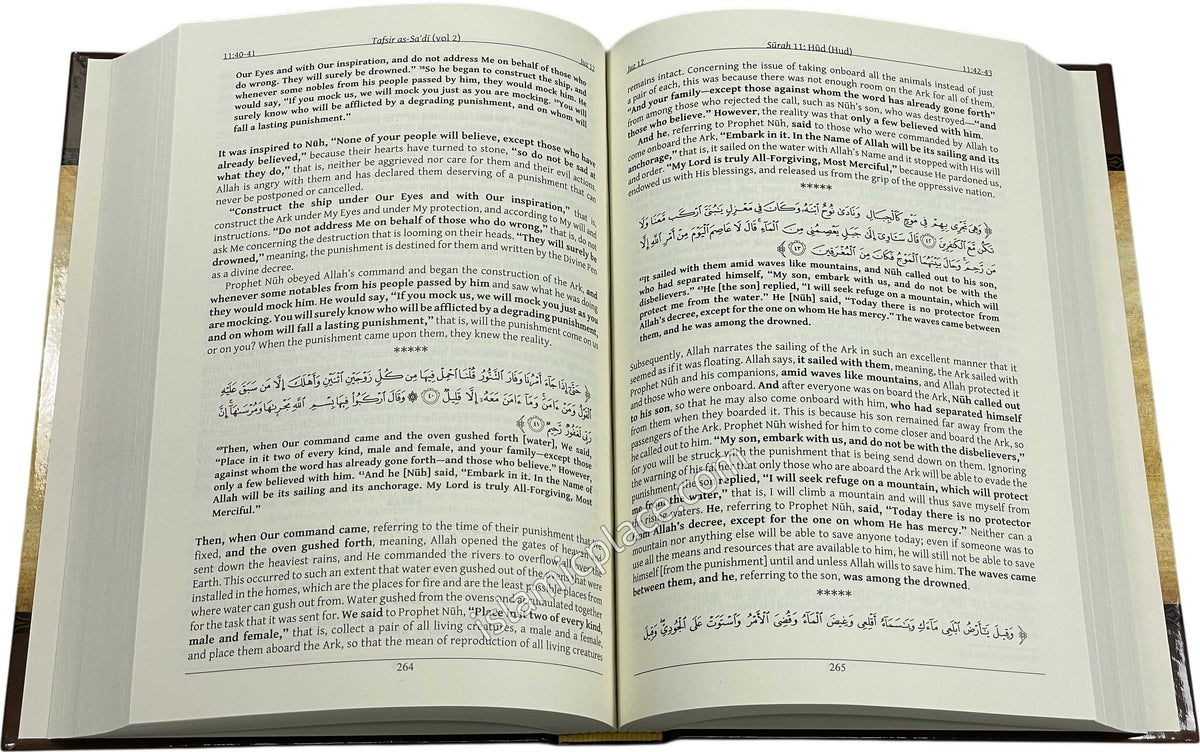 11:40-41 Tafsir as-Sa'di (vol 2) Juz 12
Our Eyes and with Our inspiration, and do not address Me on behalf of those who
do wrong. They will surely be drowned." ³⁸So he began to construct the ship, and
whenever some nobles from his people passed by him, they would mock him. He
would say, "If you mock us, we will mock you just as you are mocking. ³⁹You will
surely know who will be afflicted by a degrading punishment, and on whom will
fall a lasting punishment."
It was inspired to Nūh, "None of your people will believe, except those who have
already believed," because their hearts have turned to stone, "so do not be sad at
what they do," that is, neither be aggrieved nor care for them and their evil actions.
Allah is angry with them and has declared them deserving of a punishment that can
never be postponed or cancelled.
"Construct the ship under Our Eyes and with Our inspiration," that is,
construct the Ark under My Eyes and under My protection, and according to My will and
instructions. "Do not address Me on behalf of those who do wrong," that is, do not
ask Me concerning the destruction that is looming on their heads. "They will surely be
drowned," meaning, the punishment is destined for them and written by the Divine Pen
as a divine decree.
Prophet Nūh obeyed Allah's command and began the construction of the Ark, and
whenever some notables from his people passed by him and saw what he was doing
they would mock him. He would say, "If you mock us, we will mock you just as you
are mocking. You will surely know who will be afflicted by a degrading punishment,
and on whom will fall a lasting punishment," that is, will the punishment come on us
or on you? When the punishment came upon them, they knew the reality.
*****
﴿ حَتَّىٰ إِذَا جَاءَ أَمْرُنَا وَفَارَ التَّنُّورُ قُلْنَا احْمِلْ فِيهَا مِن كُلٍّ زَوْجَيْنِ اثْنَيْنِ وَأَهْلَكَ إِلَّا مَن سَبَقَ عَلَيْهِ
الْقَوْلُ وَمَنْ ءَامَنَ ۚ وَمَا ءَامَنَ مَعَهُ إِلَّا قَلِيلٌ ﴿٤٠﴾ ۞ وَقَالَ ارْكَبُوا فِيهَا بِسْمِ اللَّهِ مَجْرِىٰهَا وَمُرْسَىٰهَا ۚ إِنَّ
رَبِّى لَغَفُورٌ رَّحِيمٌ ﴿٤١﴾ ﴾
⁴⁰Then, when Our command came and the oven gushed forth [water], We said,
"Place in it two of every kind, male and female, and your family—except those
against whom the word has already gone forth—and those who believe." However,
only a few believed with him. ⁴¹And he [Nūh] said, "Embark in it. In the Name of
Allah will be its sailing and its anchorage. My Lord is truly All-Forgiving, Most
Merciful."
Then, when Our command came, referring to the time of their punishment that is
fixed, and the oven gushed forth, meaning, Allah opened the gates of heaven,
sent down the heaviest rains, and He commanded the rivers to overflow over the
Earth. This occurred to such an extent that water even gushed out of the ovens that were
installed in the homes, which are the places for fire and are the least possible places from
where water can gush out from. Water gushed from the ovens and accumulated together
for the task that it was sent for. We said to Prophet Nūh, "Place in it two of every kind,
male and female," that is, collect a pair of all living creatures, a male and a female,
and place them aboard the Ark, so that the mean of reproduction of all living creatures
264
Juz 12 Sūrah 11: Hūd (Hud) 11:42-43
remains intact. Concerning the issue of taking onboard all the animals instead of just
a pair of each, this was because there was not enough room on the Ark for all of them.
"And your family—except those against whom the word has already gone forth"
from among those who rejected the call, such as Nūh's son, who was destroyed—"and
those who believe." However, the reality was that only a few believed with him.
And he, referring to Prophet Nūh, said to those who were commanded by Allah to
come onboard the Ark, "Embark in it. In the Name of Allah will be its sailing and its
anchorage," that is, it sailed on the water with Allah's Name and it stopped with His will
and order. "My Lord is truly All-Forgiving, Most Merciful," because He pardoned us,
endowed us with His blessings, and released us from the grip of the oppressive nation.
*****
﴿ وَهِىَ تَجْرِى بِهِمْ فِى مَوْجٍ كَالْجِبَالِ وَنَادَىٰ نُوحٌ ابْنَهُ وَكَانَ فِى مَعْزِلٍ يَٰبُنَىَّ ارْكَب مَّعَنَا وَلَا
تَكُن مَّعَ الْكَٰفِرِينَ ﴿٤٢﴾ قَالَ سَـَٔاوِى إِلَىٰ جَبَلٍ يَعْصِمُنِى مِنَ الْمَاءِ ۚ قَالَ لَا عَاصِمَ الْيَوْمَ مِنْ أَمْرِ اللَّهِ إِلَّا
مَن رَّحِمَ ۚ وَحَالَ بَيْنَهُمَا الْمَوْجُ فَكَانَ مِنَ الْمُغْرَقِينَ ﴿٤٣﴾ ﴾
⁴²It sailed with them amid waves like mountains, and Nūh called out to his son,
who had separated himself, "My son, embark with us, and do not be with the
disbelievers." ⁴³He [the son] replied, "I will seek refuge on a mountain, which will
protect me from the water." He [Nūh] said, "Today there is no protector from
Allah's decree, except for the one on whom He has mercy." The waves came between
them, and he was among the drowned.
Subsequently, Allah narrates the sailing of the Ark in such an excellent manner that it
seemed as if it was floating. Allah says, it sailed with them, meaning, the Ark sailed with
Prophet Nūh and his companions, amid waves like mountains, and Allah protected it
and those who were onboard. And after everyone was on board the Ark, Nūh called out
to his son, so that he may also come onboard with him, who had separated himself
from them when they boarded it. This is because his son remained far away from the
passengers of the Ark. Prophet Nūh wished for him to come closer and board the Ark, so
he called out to him. "My son, embark with us, and do not be with the disbelievers,"
for you will be struck with the punishment that is being send down on them. Ignoring
the warning of his father that only those who are aboard the Ark will be able to evade the
punishment, the son replied, "I will seek refuge on a mountain, which will protect
me from the water," that is, I will climb a mountain and will thus save myself from
the rising waters. He, referring to Prophet Nūh, said, "Today there is no protector
from Allah's decree, except for the one on whom He has mercy." Neither can a
mountain nor anything else will be able to save anyone today; even if someone was to
use all the means and resources that are available to him, he will still not be able to save
himself [from the punishment] until and unless Allah wills to save him. The waves came
between them, and he, referring to the son, was among the drowned.
*****
﴿ وَقِيلَ يَٰٓأَرْضُ ابْلَعِى مَاءَكِ وَيَٰسَمَاءُ أَقْلِعِى وَغِيضَ الْمَاءُ وَقُضِىَ الْأَمْرُ وَاسْتَوَتْ عَلَى الْجُودِىِّ ۖ وَقِيلَ
265
islamicplace.com